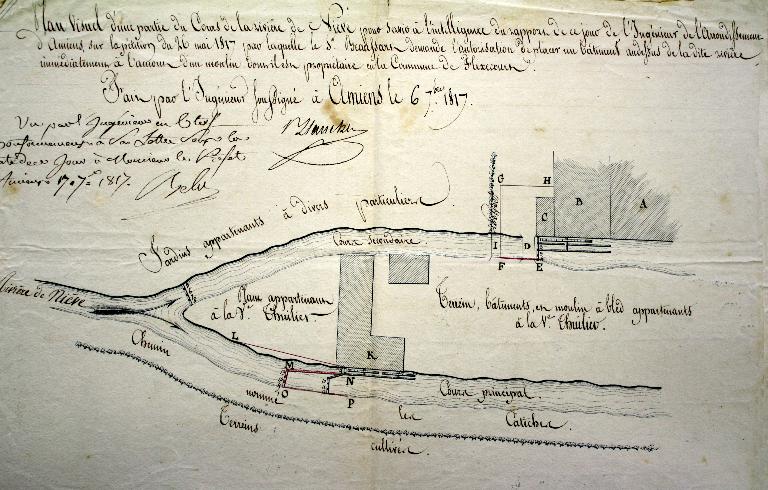 Plan Visuel d'une partie du Cours de la rivière de Nièvre pour servir à l'intelligence du rapport de ce jour de l'Ingénieur de l'Arrondissement
d'Amiens, sur la pétition du 26 mai 1817 par laquelle le Sr. Beaussart demande l'autorisation de placer un bâtiment audessus de la dite rivière
immédiatement à l'amont d'un moulin dont il est propriétaire en la Commune de Flixecourt.
Fait par l'Ingénieur soussigné à Amiens le 6 7bre 1817.
Vu par l'Ingénieur en Chef
conformement à sa Lettre
de ce Jour à Monsieur le Préfet
Amiens 17 7bre 1817.
Jardins appartenants à divers particuliers
G H
C B A
I D
F E
Cours secondaire
Rivière de Nièvre
Plan appartenant
à la Ve. Thuilier
Terrein, bâtiments, et moulin à bled appartenants
à la Ve. Thuilier.
Chemin
L
K
M N
O P
nommé
les
Catiches
Cours principal
Terreins
cultivés